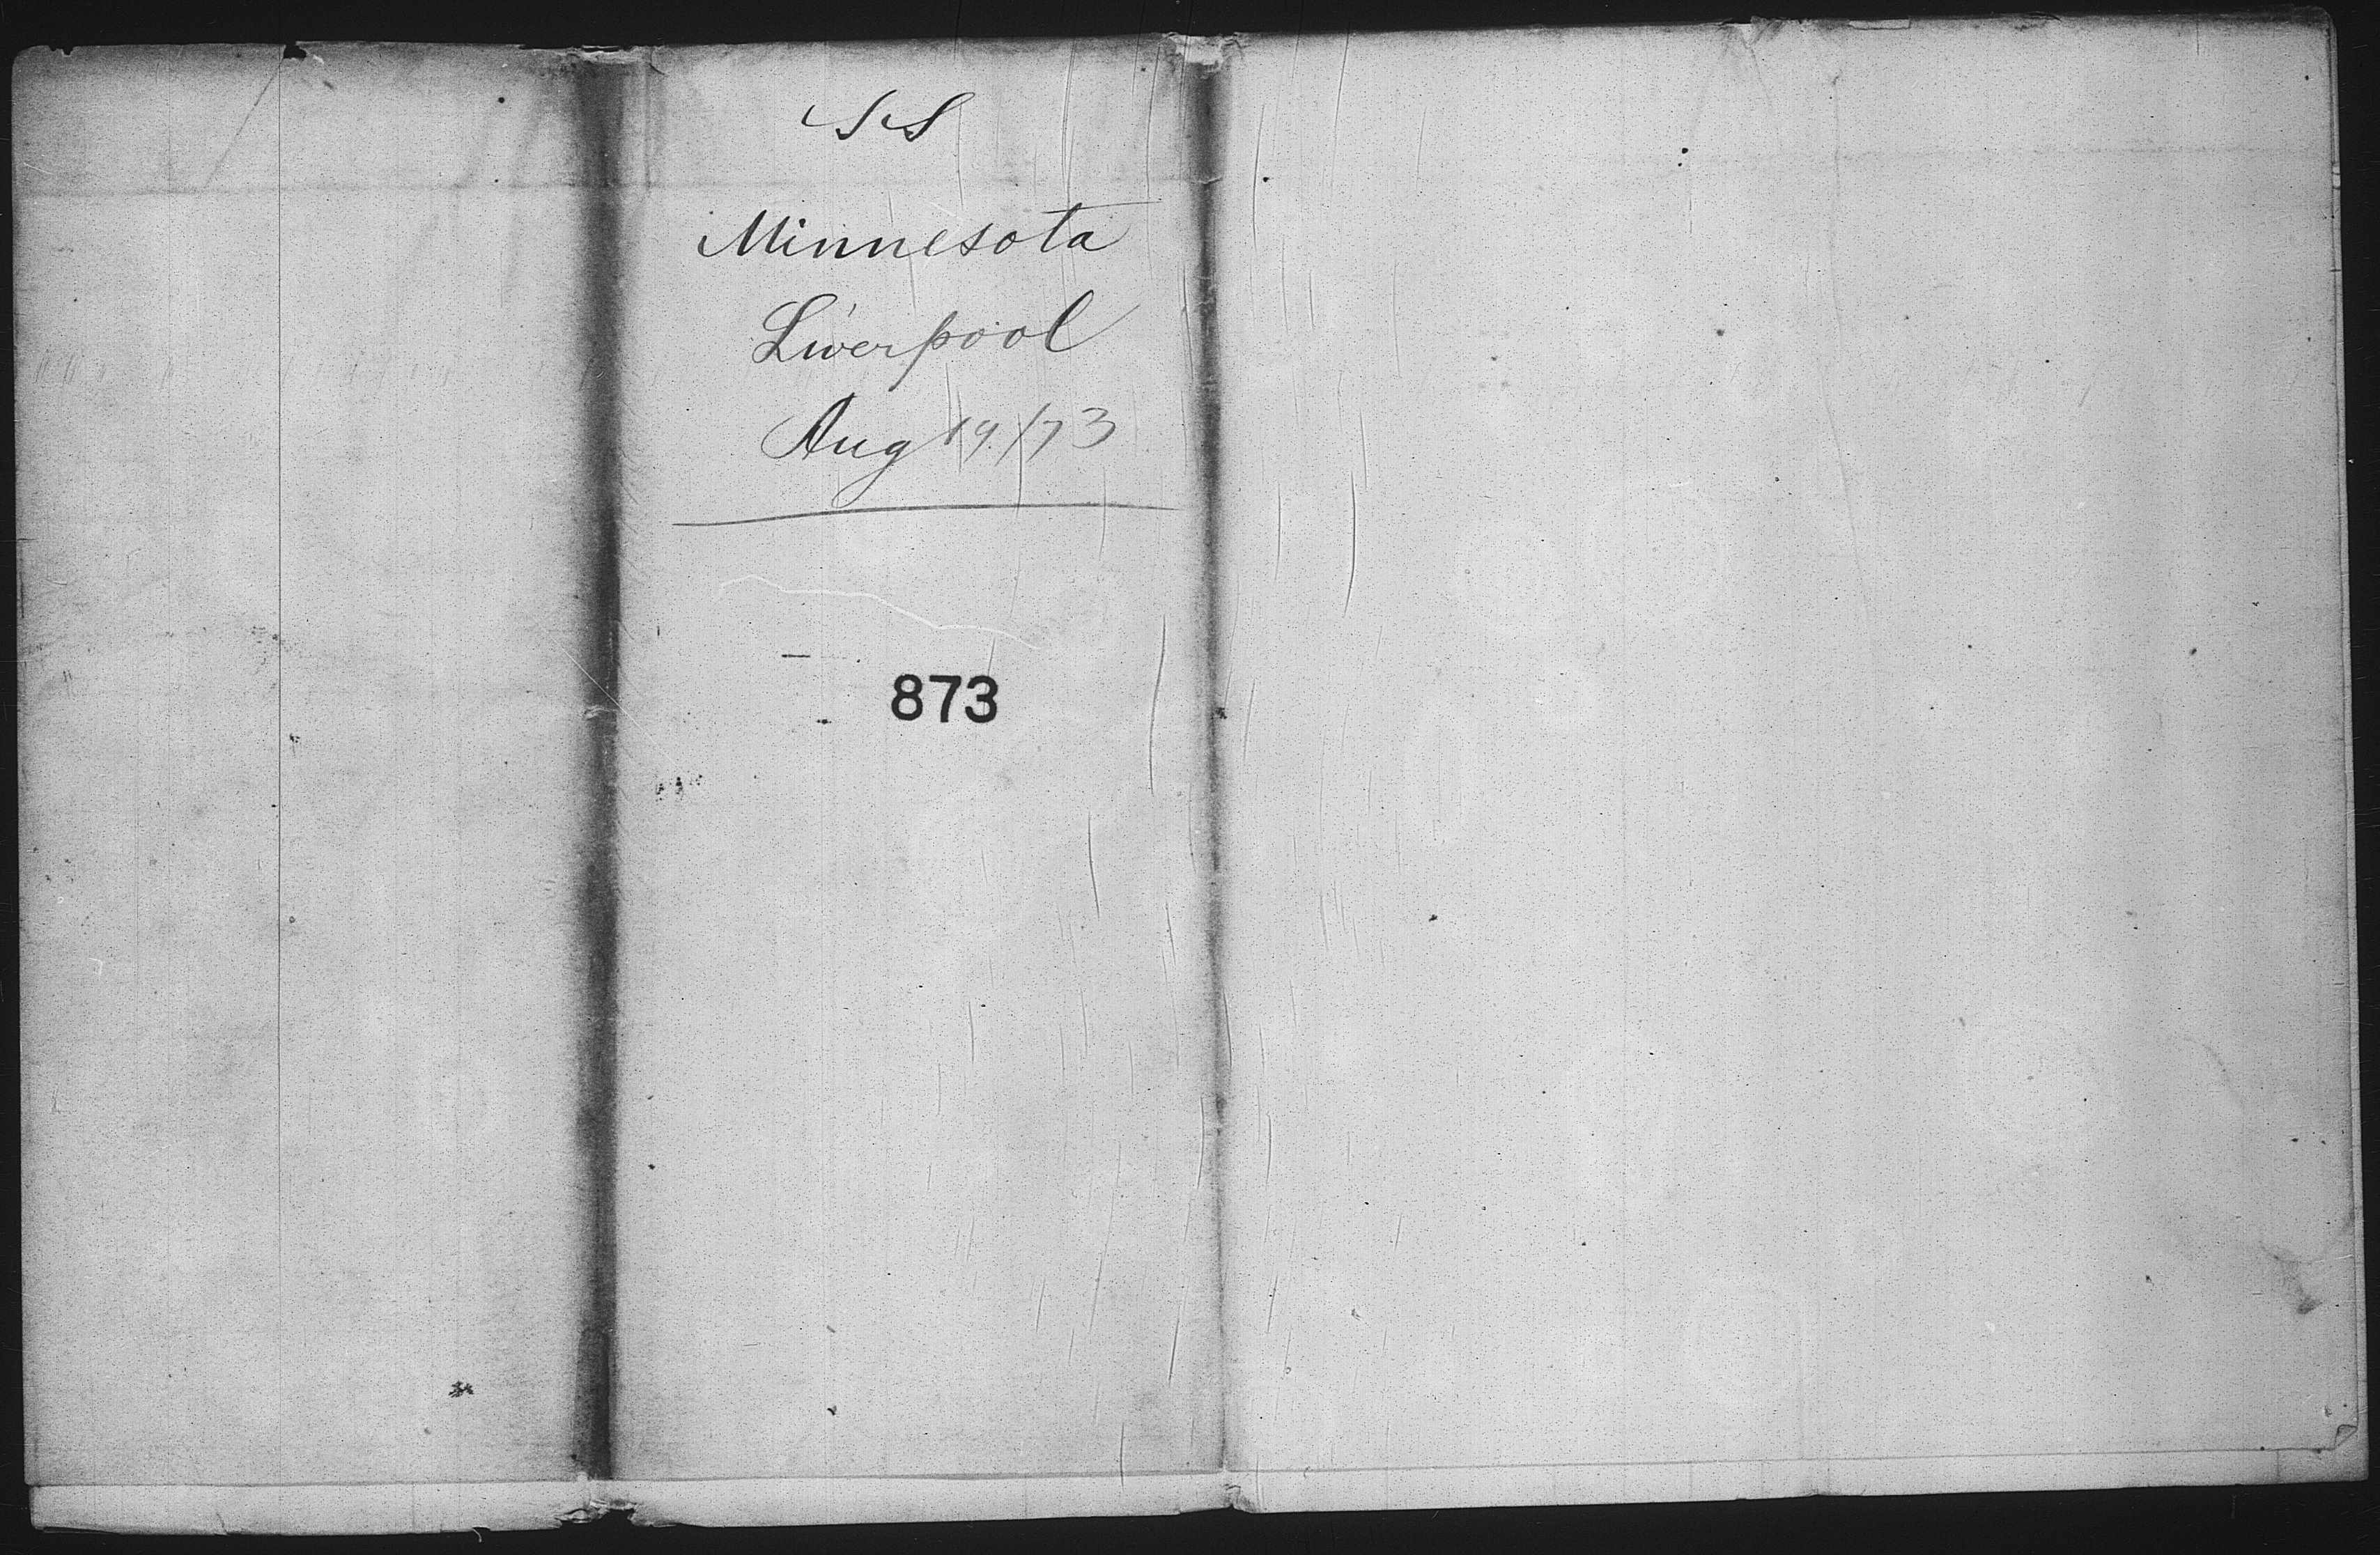 SS
Minnesota
Liverpool
Aug 19/73
873